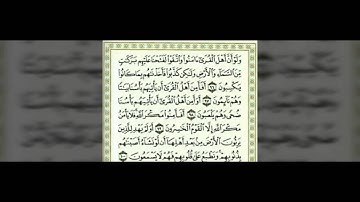 وَلَوْ أَنَّ أَهْلَ ٱلْقُرَىٰٓ ءَامَنُوا۟ وَٱتَّقَوْا۟ لَفَتَحْنَا عَلَيْهِم بَرَكَٰتٍ
مِّنَ ٱلسَّمَآءِ وَٱلْأَرْضِ وَلَٰكِن كَذَّبُوا۟ فَأَخَذْنَٰهُم بِمَا كَانُوا۟
يَكْسِبُونَ ٩٦ أَفَأَمِنَ أَهْلُ ٱلْقُرَىٰٓ أَن يَأْتِيَهُم بَأْسُنَا بَيَٰتًا
وَهُمْ نَآئِمُونَ ٩٧ أَوَأَمِنَ أَهْلُ ٱلْقُرَىٰٓ أَن يَأْتِيَهُم بَأْسُنَا
ضُحًى وَهُمْ يَلْعَبُونَ ٩٨ أَفَأَمِنُوا۟ مَكْرَ ٱللَّهِ فَلَا يَأْمَنُ
مَكْرَ ٱللَّهِ إِلَّا ٱلْقَوْمُ ٱلْخَٰسِرُونَ ٩٩ أَوَلَمْ يَهْدِ لِلَّذِينَ
يَرِثُونَ ٱلْأَرْضَ مِنۢ بَعْدِ أَهْلِهَآ أَن لَّوْ نَشَآءُ أَصَبْنَٰهُم
بِذُنُوبِهِمْ وَنَطْبَعُ عَلَىٰ قُلُوبِهِمْ فَهُمْ لَا يَسْمَعُونَ ١٠٠